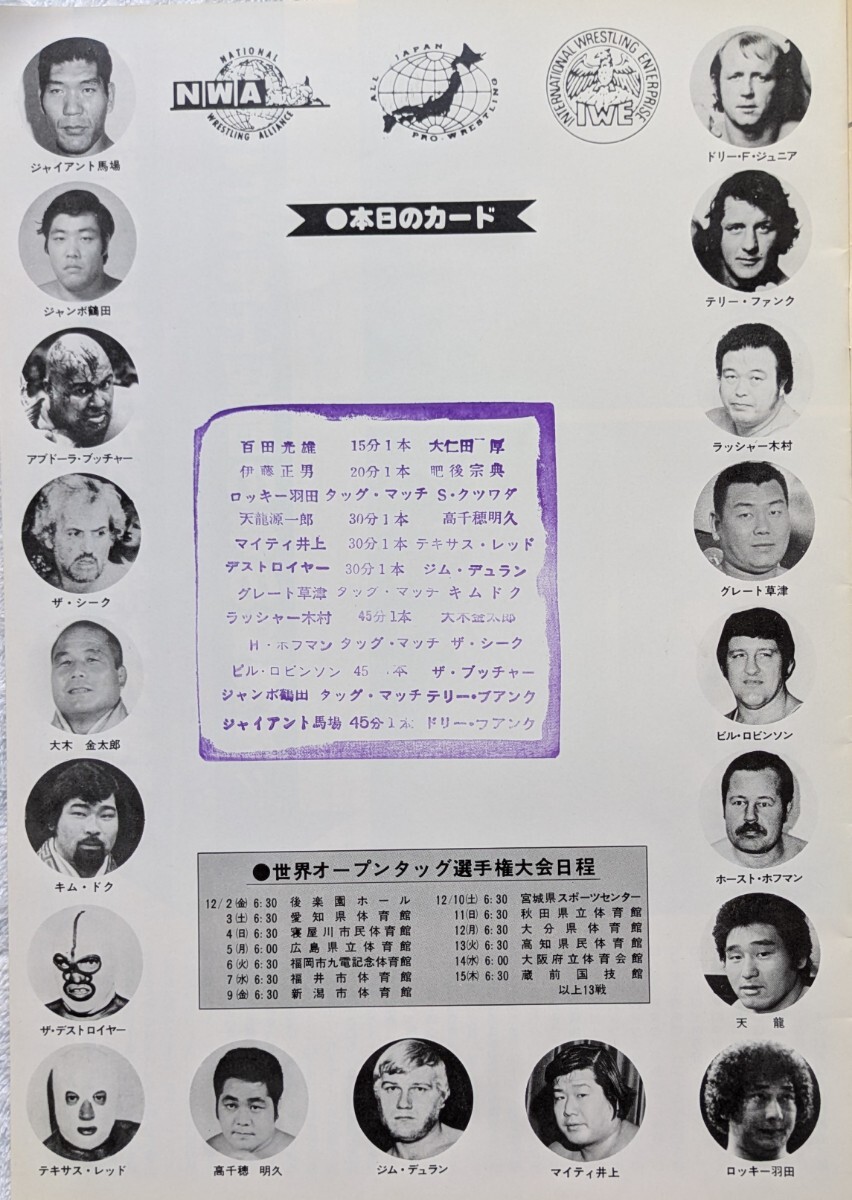 NATIONAL
NWA
WRESTLING ALLIANCE
ALL JAPAN
PRO-WRESTLING
INTERNATIONAL WRESTLING ENTERPRISE
IWE
ジャイアント馬場
ドリー・F・ジュニア
●本日のカード
ジャンボ鶴田
テリー・ファンク
アブドーラ・ブッチャー
ラッシャー木村
百田光雄 15分1本 大仁田 厚
伊藤正男 20分1本 肥後宗典
ロッキー羽田 タッグ・マッチ S・クツワダ
天龍源一郎 30分1本 高千穂明久
マイティ井上 30分1本 テキサス・レッド
デストロイヤー 30分1本 ジム・デュラン
グレート草津 タッグ・マッチ キムドク
ラッシャー木村 45分1本 大木金太郎
H・ホフマン タッグ・マッチ ザ・シーク
ビル・ロビンソン 45 本 ザ・ブッチャー
ジャンボ鶴田 タッグ・マッチ テリー・ファンク
ジャイアント馬場 45分1本 ドリー・ファンク
ザ・シーク
グレート草津
大木 金太郎
ビル・ロビンソン
キム・ドク
ホースト・ホフマン
●世界オープンタッグ選手権大会日程
12/2㈮ 6:30 後楽園ホール
3㈯ 6:30 愛知県体育館
4㈰ 6:30 寝屋川市民体育館
5㈪ 6:00 広島県立体育館
6㈫ 6:30 福岡市九電記念体育館
7㈬ 6:30 福井市体育館
9㈮ 6:30 新潟市体育館
12/10㈯ 6:30 宮城県スポーツセンター
11㈰ 6:30 秋田県立体育館
12㈪ 6:30 大分県体育館
13㈫ 6:30 高知県民体育館
14㈬ 6:00 大阪府立体育会館
15㈭ 6:30 蔵前国技館
以上13戦
ザ・デストロイヤー
天 龍
テキサス・レッド
高千穂 明久
ジム・デュラン
マイティ井上
ロッキー羽田